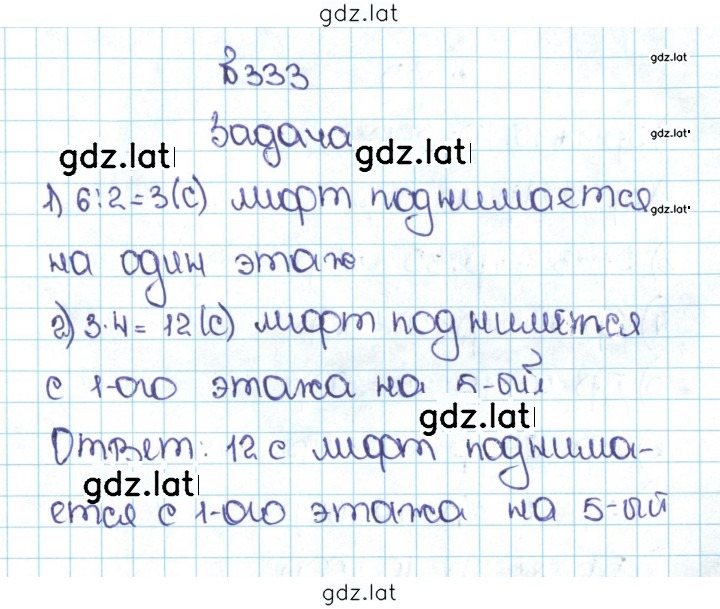 gdz.lat
№333
gdz.lat
Задача
gdz.lat
gdz.lat gdz.lat
1) 6:2=3(с) лифт поднимается
gdz.lat
на один этаж
2) 3·4= 12(с) лифт поднимется
с 1-ого этажа на 5-ый
gdz.lat
Ответ: 12 с лифт поднима-
gdz.lat
ется с 1-ого этажа на 5-ый
gdz.lat